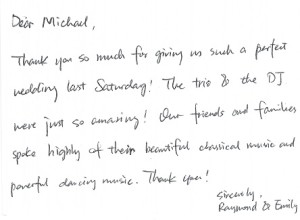 Dear Michael,
Thank you so much for giving us such a perfect
wedding last Saturday! The trio & the DJ
were just so amazing! Our friends and families
spoke highly of their beautiful classical music and
powerful dancing music. Thank you!
Sincerely,
Raymond & Emily